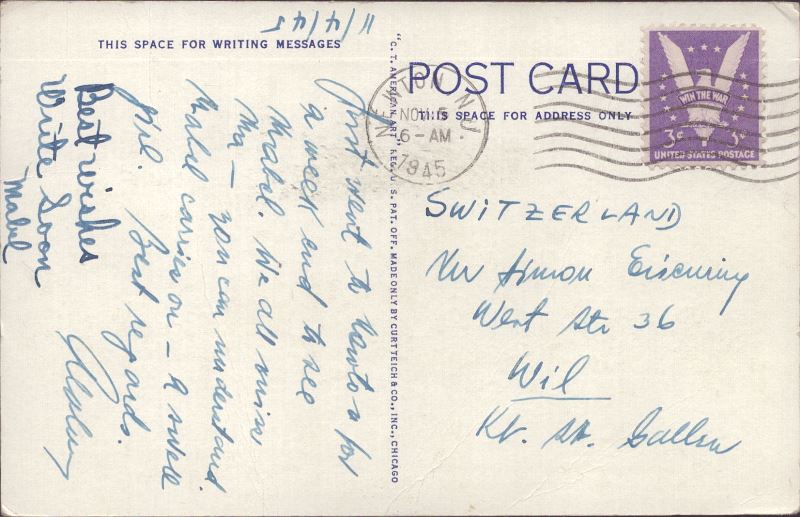 THIS SPACE FOR WRITING MESSAGES
11/4/45
Just went to Newton for
a week end to see
Mabel. We all miss
Ma — you can understand
Mabel carries on — a swell
girl. Best regards.
Best wishes
Write Soon
Mabel
"C. T. AMERICAN ART" REG. U. S. PAT. OFF. MADE ONLY BY CURT TEICH & CO., INC., CHICAGO
POST CARD
THIS SPACE FOR ADDRESS ONLY
NEWTON, N.J.
NOV 5
6-AM
1945
WIN THE WAR
3¢ 3¢
UNITED STATES POSTAGE
SWITZERLAND
Simon
West Str 36
Wil
Kt. St. Gallen